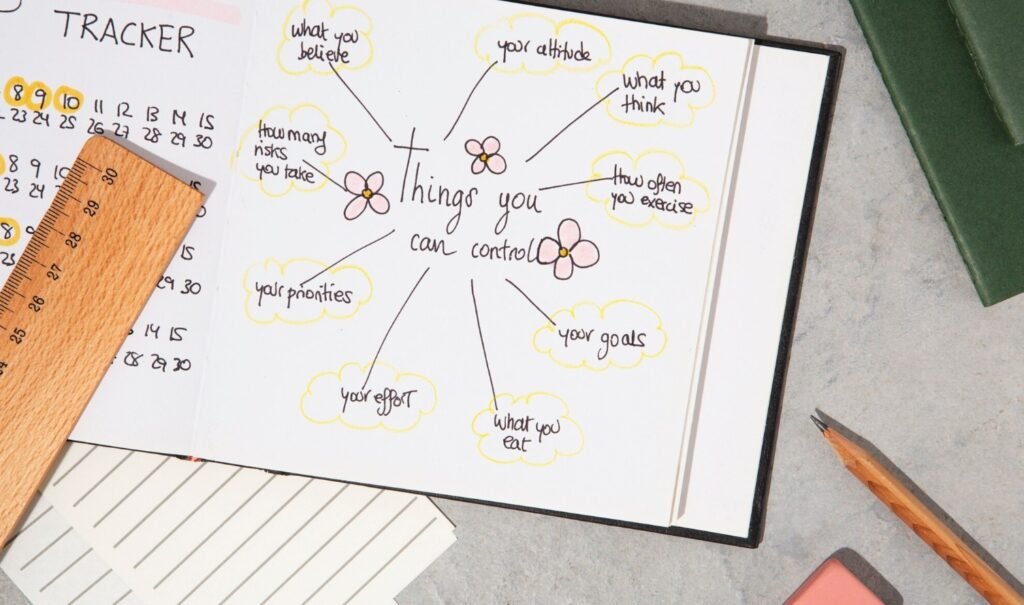 TRACKER
8 9 10 11 12 13 14 15
23 24 25 26 27 28 29 30
8 9 10
23 24
8 9
15
29 30
14 15
28 29 30
30
29
28
27
26
25
24
what you
believe
your attitude
what you
think
How many
risks
you take
How often
you exercise
Things you
can control
your priorities
your goals
your effort
what you
eat